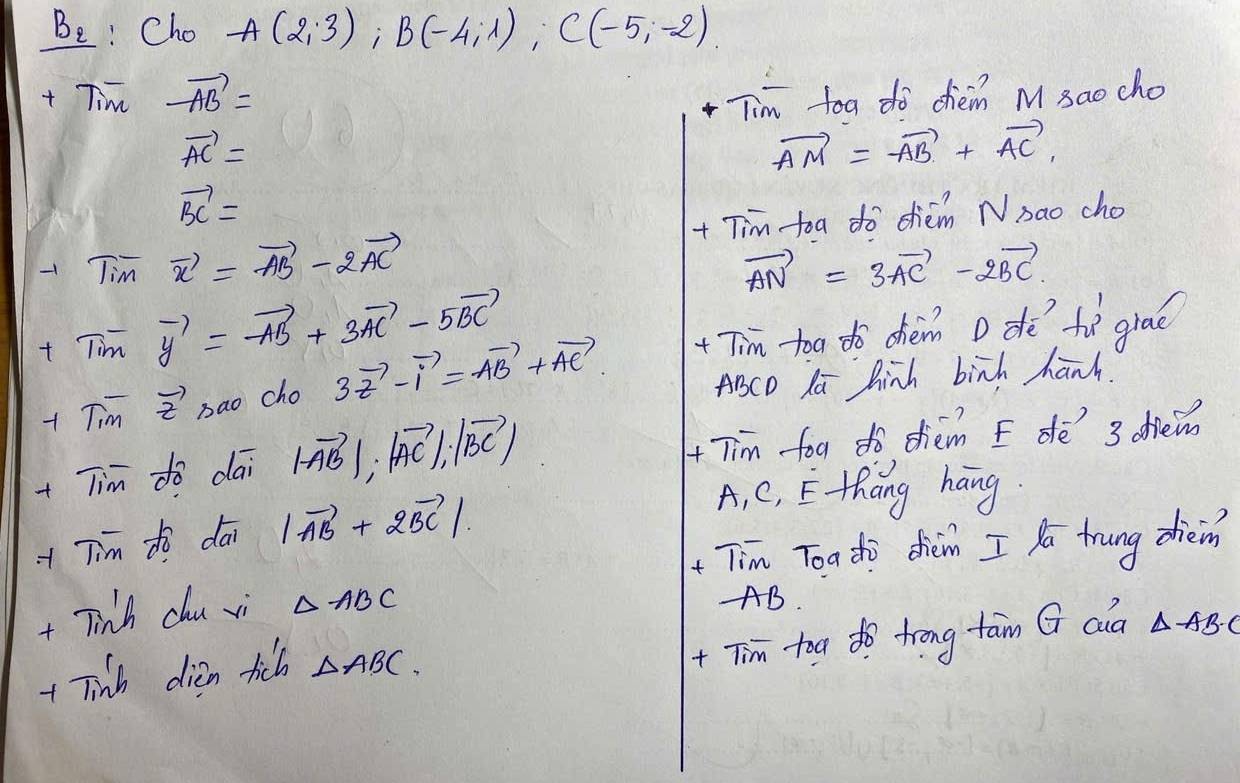 B2 : Cho A(2;3) ; B(-4;1) ; C(-5;-2).
+ Tìm AB→ =
AC→ =
BC→ =
+ Tìm x→ = AB→ - 2AC→
+ Tìm y→ = AB→ + 3AC→ - 5BC→
+ Tìm z→ sao cho 3z→ - i→ = AB→ + AC→.
+ Tìm độ dài |AB→| ; |AC→| ; |BC→|
+ Tìm độ dài |AB→ + 2BC→|.
+ Tính chu vi △ABC
+ Tính diện tích △ABC.
+ Tìm toạ độ điểm M sao cho
AM→ = AB→ + AC→.
+ Tìm toạ độ điểm N sao cho
AN→ = 3AC→ - 2BC→.
+ Tìm toạ độ điểm D để tứ giác
ABCD là hình bình hành.
+ Tìm toạ độ điểm E để 3 điểm
A, C, E thẳng hàng.
+ Tìm Toạ độ điểm I là trung điểm
AB.
+ Tìm toạ độ trọng tâm G của △ABC